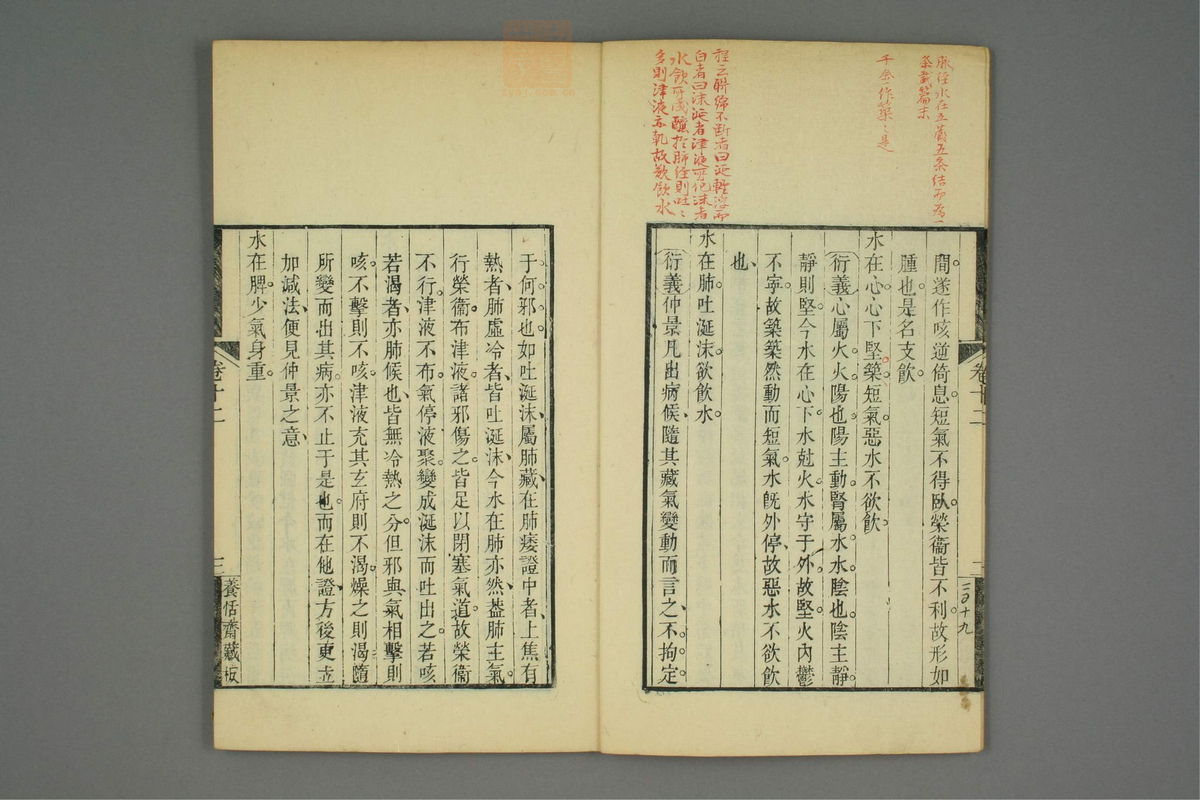 脉経水在五藏五条結而為一
条載篇末
千金作築〻是
程云聯綿不断者曰涎輕浮而
白者曰沫涎者津液所化沫者
水飲所成釀於肺経則吐〻
多則津液亦乾故欲飲水
間遂作咳逆倚息短氣不得臥榮衞皆不利故形如
腫也是名支飲
水在心心下堅築短氣惡水不欲飲
衍義心屬火火陽也陽主動腎屬水水陰也陰主靜
靜則堅今水在心下水尅火水守于外故堅火內鬱
不寧故築築然動而短氣水旣外停故惡水不欲飲
也
水在肺吐涎沫欲飲水
衍義仲景凡出病候隨其藏氣變動而言之不拘定
卷十二
二
二百十九
于何邪也如吐涎沫屬肺藏在肺痿證中者上焦有
熱者肺虛冷者皆吐涎沫今水在肺亦然葢肺主氣
行榮衞布津液諸邪傷之皆足以閉塞氣道故榮衞
不行津液不布氣停液聚變成涎沫而吐出之若咳
若渴者亦肺候也皆無冷熱之分但邪與氣相擊則
咳不擊則不咳津液充其玄府則不渴燥之則渴隨
所變而出其病亦不止于是也而在他證方後更立
加減法便見仲景之意
水在脾少氣身重
卷十二
三
養恬齋藏板